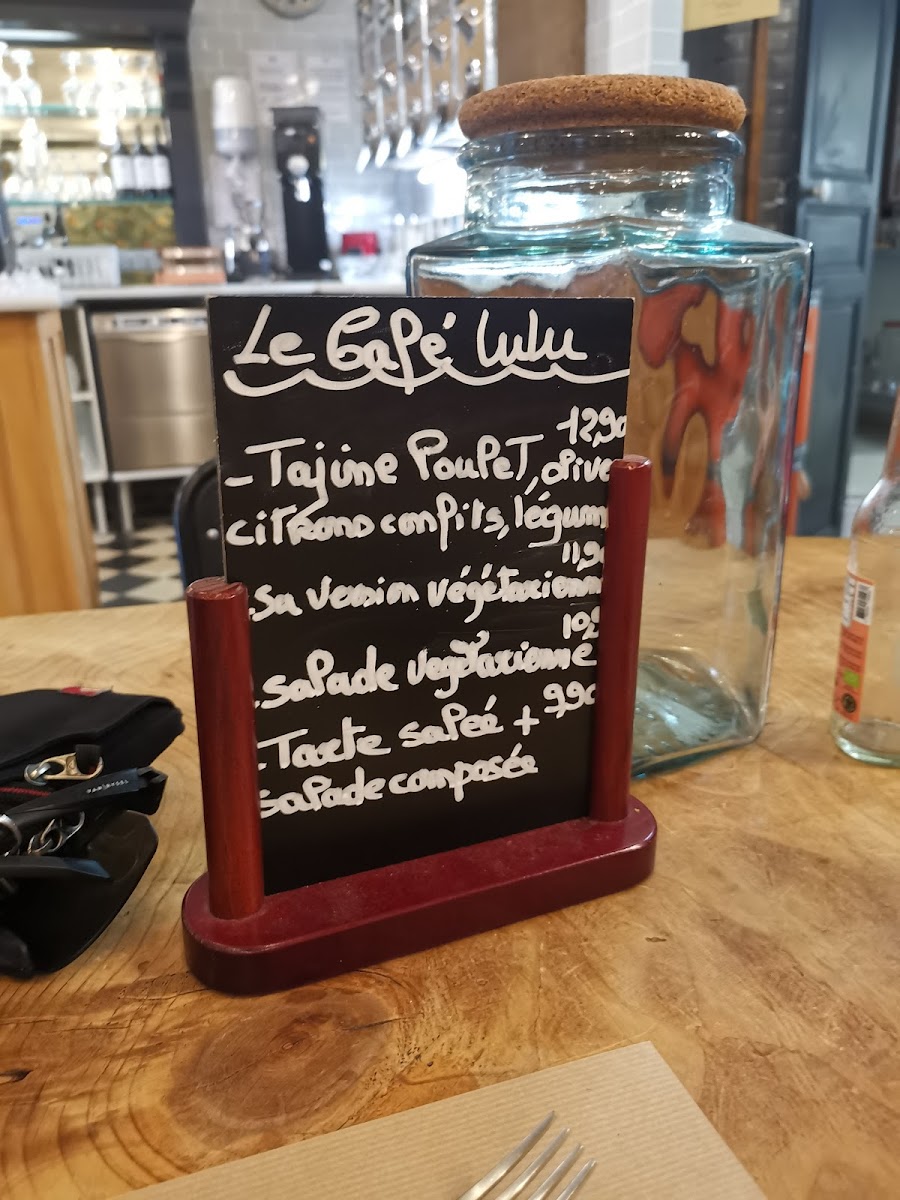 Le Café lulu
12,90
-Tajine Poulet, olive
citrons confits, légum
11,90
-Sa version végétarienne
10,9
-salade végétarienne
9,90
-Tarte salée +
salade composée